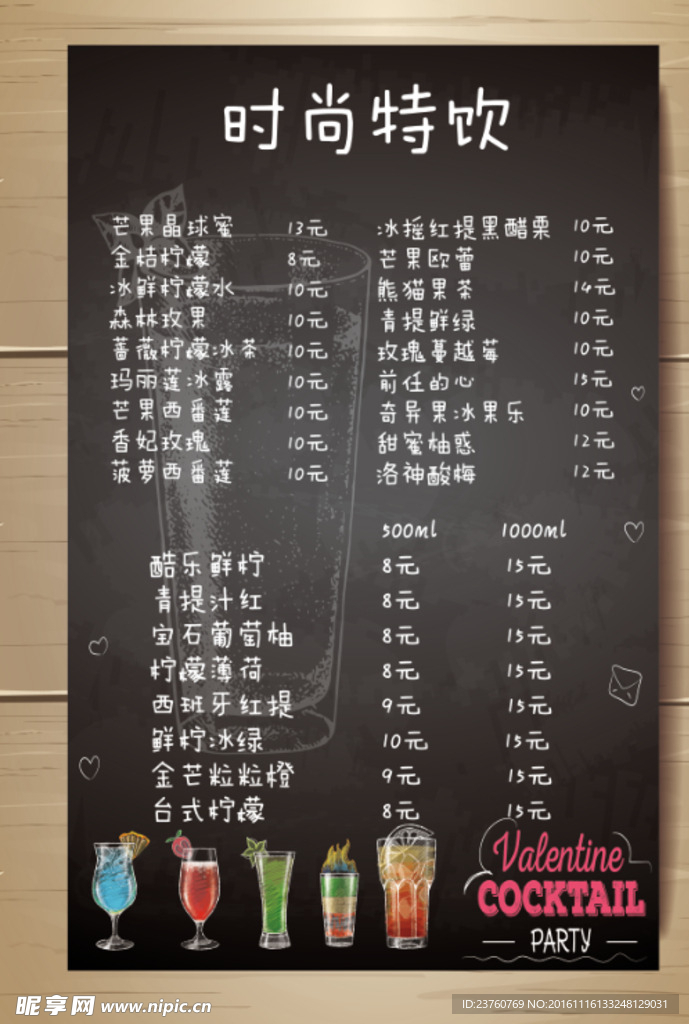 时尚特饮
芒果晶球蜜 13元
金桔柠檬 8元
冰鲜柠檬水 10元
森林玫果 10元
蔷薇柠檬冰茶 10元
玛丽莲冰露 10元
芒果西番莲 10元
香妃玫瑰 10元
菠萝西番莲 10元
冰摇红提黑醋栗 10元
芒果欧蕾 10元
熊猫果茶 14元
青提鲜绿 10元
玫瑰蔓越莓 10元
前任的心 15元
奇异果冰果乐 10元
甜蜜柚惑 12元
洛神酸梅 12元
500ml 1000ml
酷乐鲜柠 8元 15元
青提汁红 8元 15元
宝石葡萄柚 8元 15元
柠檬薄荷 8元 15元
西班牙红提 9元 15元
鲜柠冰绿 10元 15元
金芒粒粒橙 9元 15元
台式柠檬 8元 15元
Valentine
COCKTAIL
PARTY
昵享网 www.nipic.cn
ID:23760769 NO:20161116133248129031